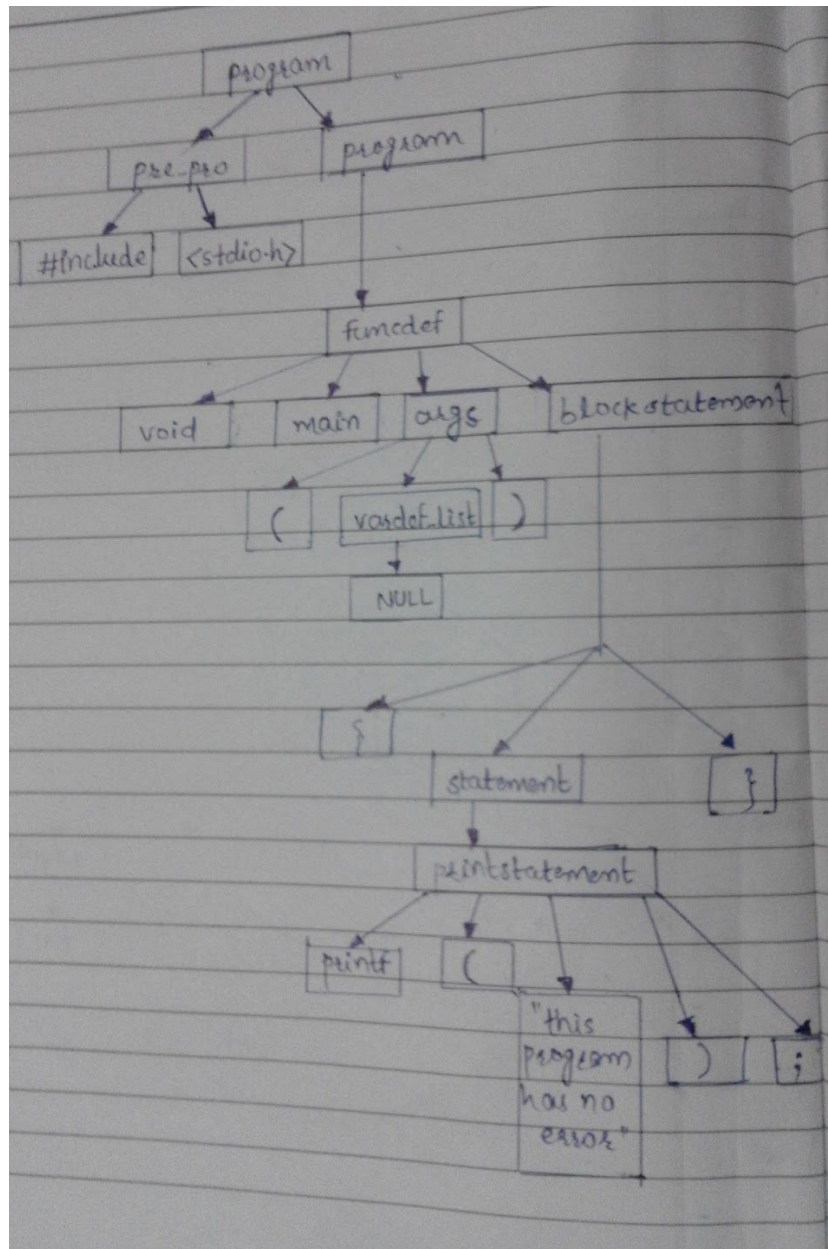 program
pre-pro program
#include <stdio.h>
funcdef
void main args blockstatement
( vardef-list )
NULL
{
statement }
printstatement
printf (
"this
program ) ;
has no
error"